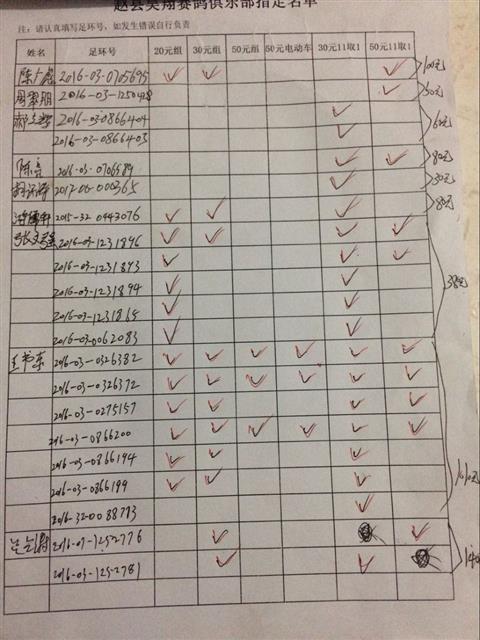 赵县昊翔赛鸽俱乐部指定名单
注：请认真填写足环号，如发生错误自行负责
姓名 足环号 20元组 30元组 50元组 50元电动车 30元11取1 50元11取1
2016-03-0705695 ✓ ✓ ✓ 100元
2016-03-1250428 ✓ 50元
2016-03-0866404 ✓ 60元
2016-03-0866403 ✓
陈亮 2016-03-0706589 ✓ ✓ 80元
2017-06-000365 ✓ 30元
2015-32-0443076 ✓ ✓ ✓ 80元
2016-03-1231896 ✓ ✓ ✓ ✓
2016-03-1231893 ✓ ✓ ✓
2016-03-1231894 ✓ ✓
2016-03-1231865 ✓ ✓
2016-03-0062083 ✓ ✓
王书茶 2016-03-0326382 ✓ ✓ ✓ ✓ ✓ ✓
2016-03-0326372 ✓ ✓ ✓ ✓ ✓ ✓
2016-03-0275157 ✓ ✓ ✓ ✓
2016-03-0866200 ✓ ✓ ✓ ✓ ✓ ✓
2016-03-0866194 ✓ ✓ ✓
2016-03-0866199 ✓ ✓ ✓
2016-32-0088773 ✓
2016-01-1252776 ✓ ✓
2016-03-1252781 ✓ ✓